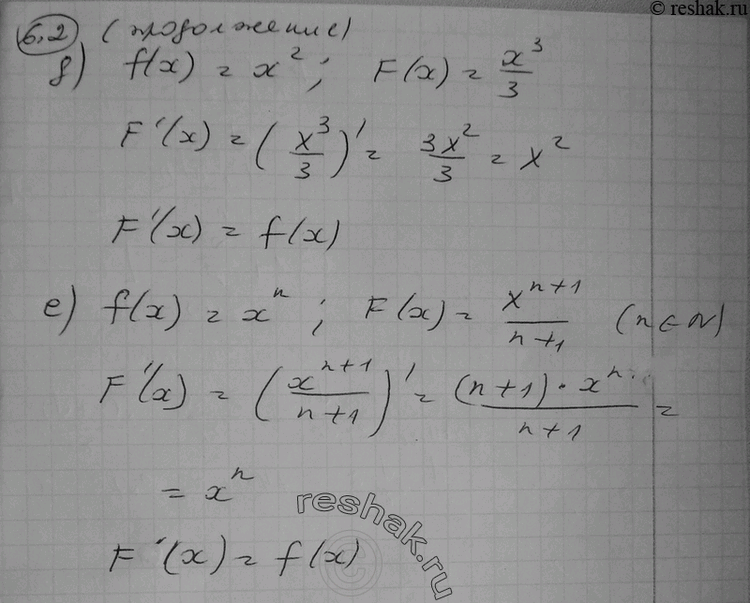 © reshak.ru
6.2 (продолжение)
д) f(x) = x²; F(x) = x³/3
F'(x) = (x³/3)' = 3x²/3 = x²
F'(x) = f(x)
е) f(x) = xⁿ; F(x) = xⁿ⁺¹/(n+1) (n∈N)
F'(x) = (xⁿ⁺¹/(n+1))' = (n+1)·xⁿ/(n+1) =
= xⁿ
reshak.ru
F'(x) = f(x)